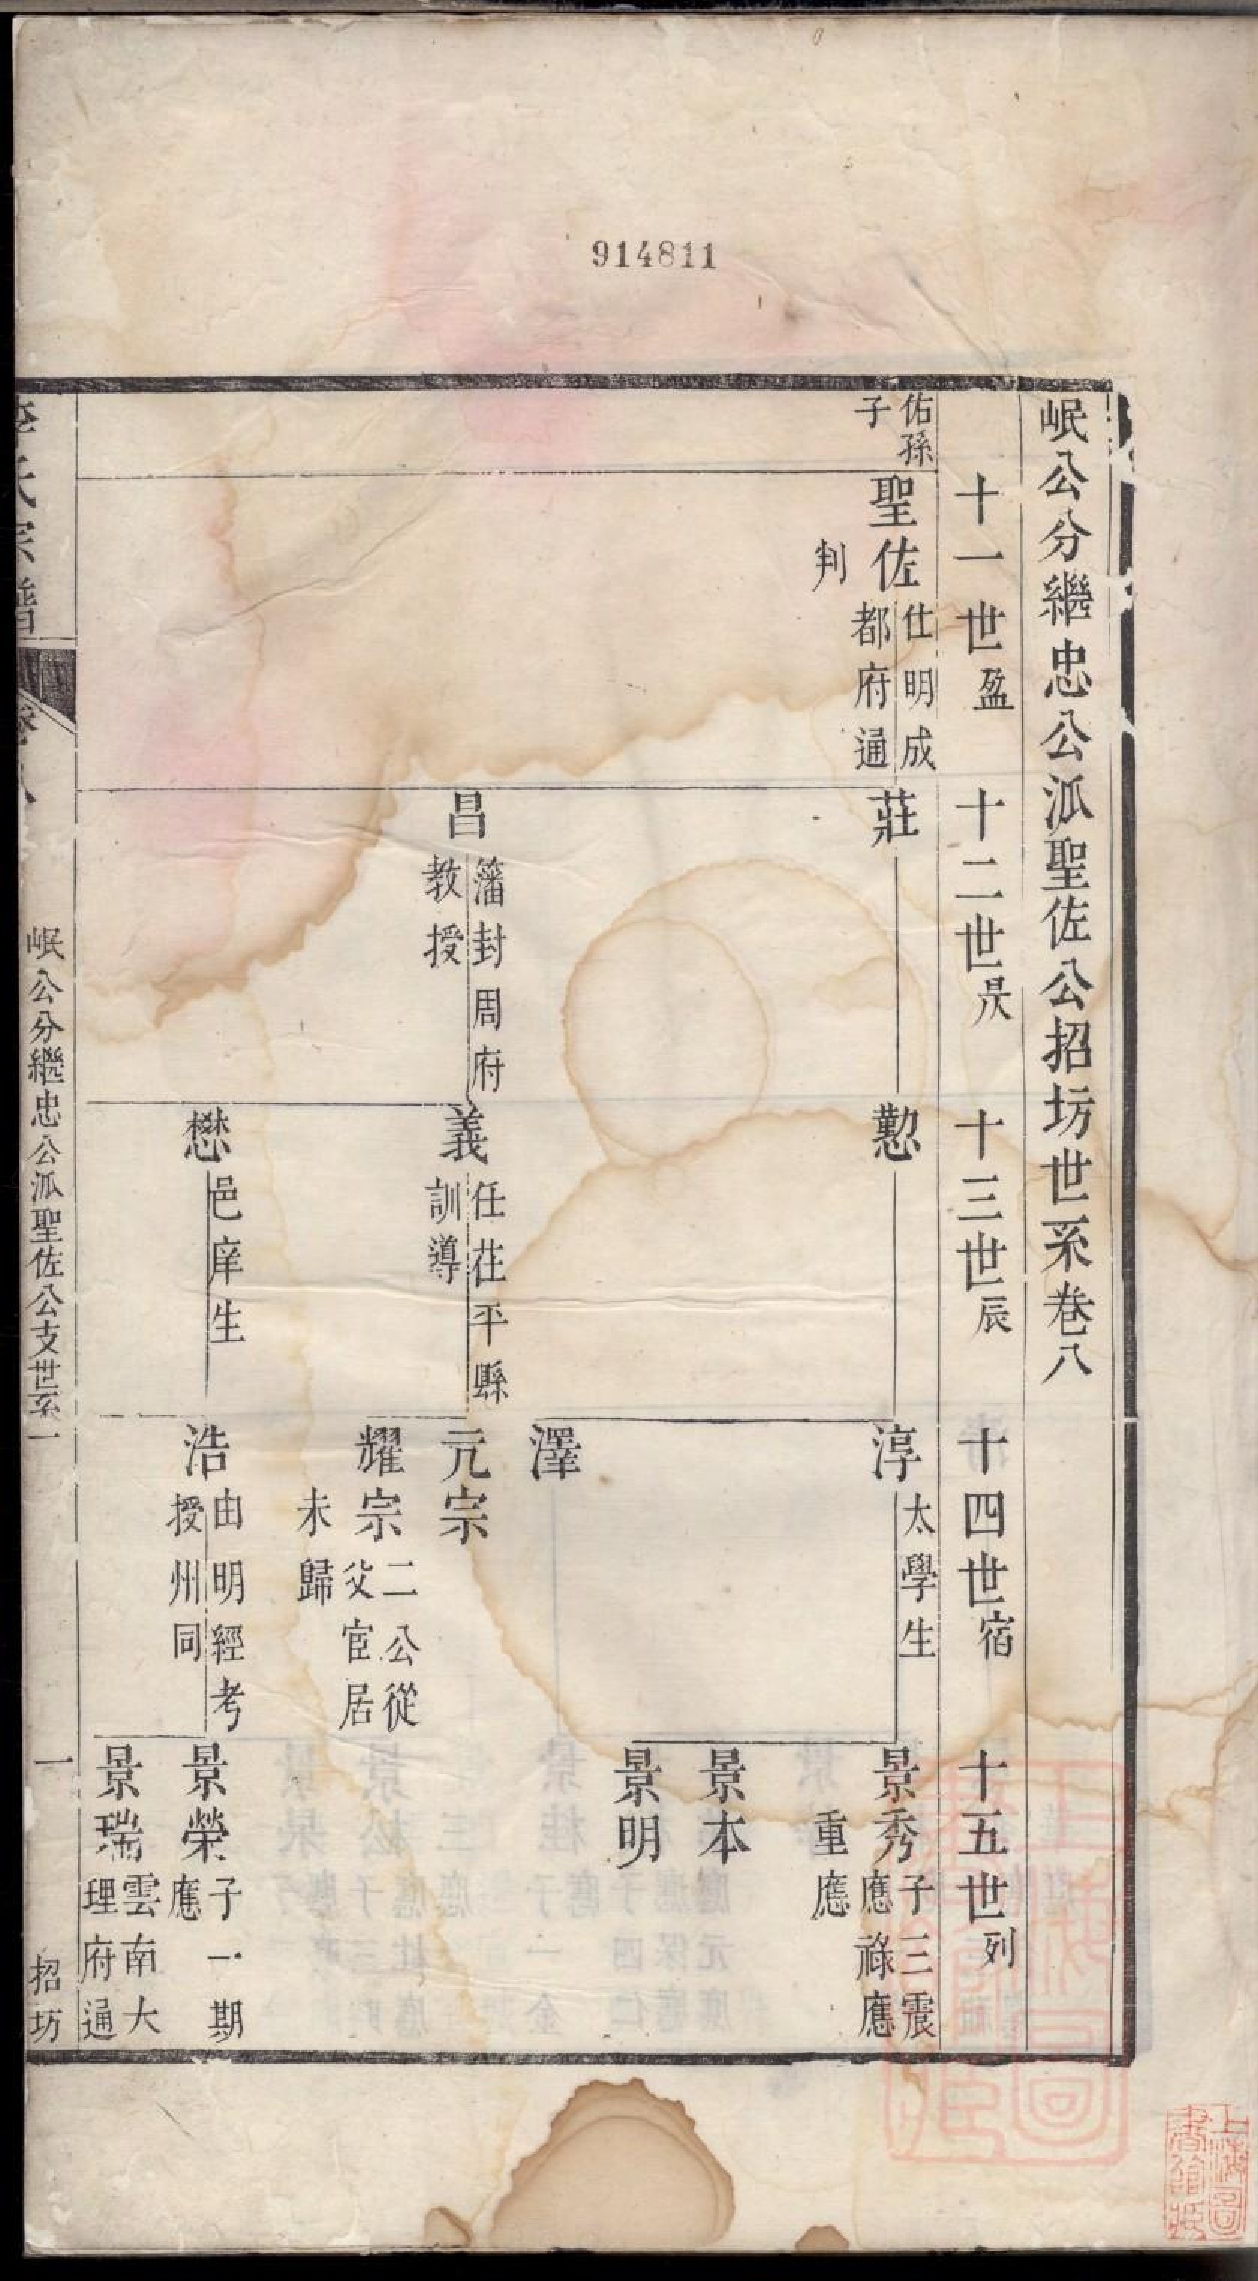 914811
岷公分繼忠公派聖佐公招坊世系卷八
十一世盈
十二世昃
十三世辰
十四世宿
十五世列
佑孫
子
聖佐
仕明成
都府通
判
莊
懃
淳
太學生
景秀
子三震
應祿應
重應
景本
景明
澤
昌
籓封周府
教授
義
任茌平縣
訓導
元宗
耀宗
二公從
父官居
未歸
懋
邑庠生
浩
由明經考
授州同
景榮
子一期
應
景瑞
雲南大
理府通
李氏宗譜
卷八
岷公分繼忠公派聖佐公支世系一
一
招坊
上海圖
書館藏